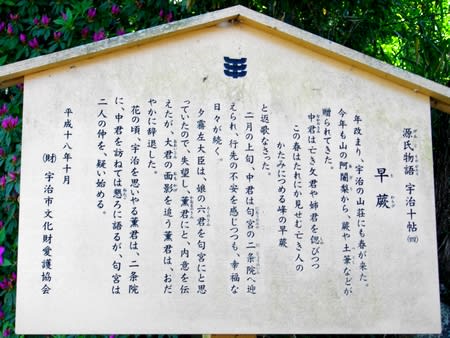 源氏物語 宇治十帖 (四)
早蕨
年改まり、宇治の山荘にも春が来た。
今年も山の阿闍梨から、蕨や土筆などが
贈られてきた。
中君は亡き父君や姉君を偲びつつ
この春はたれにか見せむ亡き人の
かたみにつめる峰の早蕨
と返歌なさった。
二月の上旬、中君は匂宮の二条院へ迎
えられ、行先の不安を感じつつも、幸福な
日々が続く。
夕霧左大臣は、娘の六君を匂宮にと思
っていたので、失望し、薫君にと、内意を伝
えたが、大君の面影を追う薫君は、おだ
やかに辞退した。
花の頃、宇治を思いやる薫君は、二条院
に、中君を訪ねては懇ろに語るが、匂宮は
二人の仲を、疑い始める。
平成十八年十月
(財) 宇治市文化財愛護協会